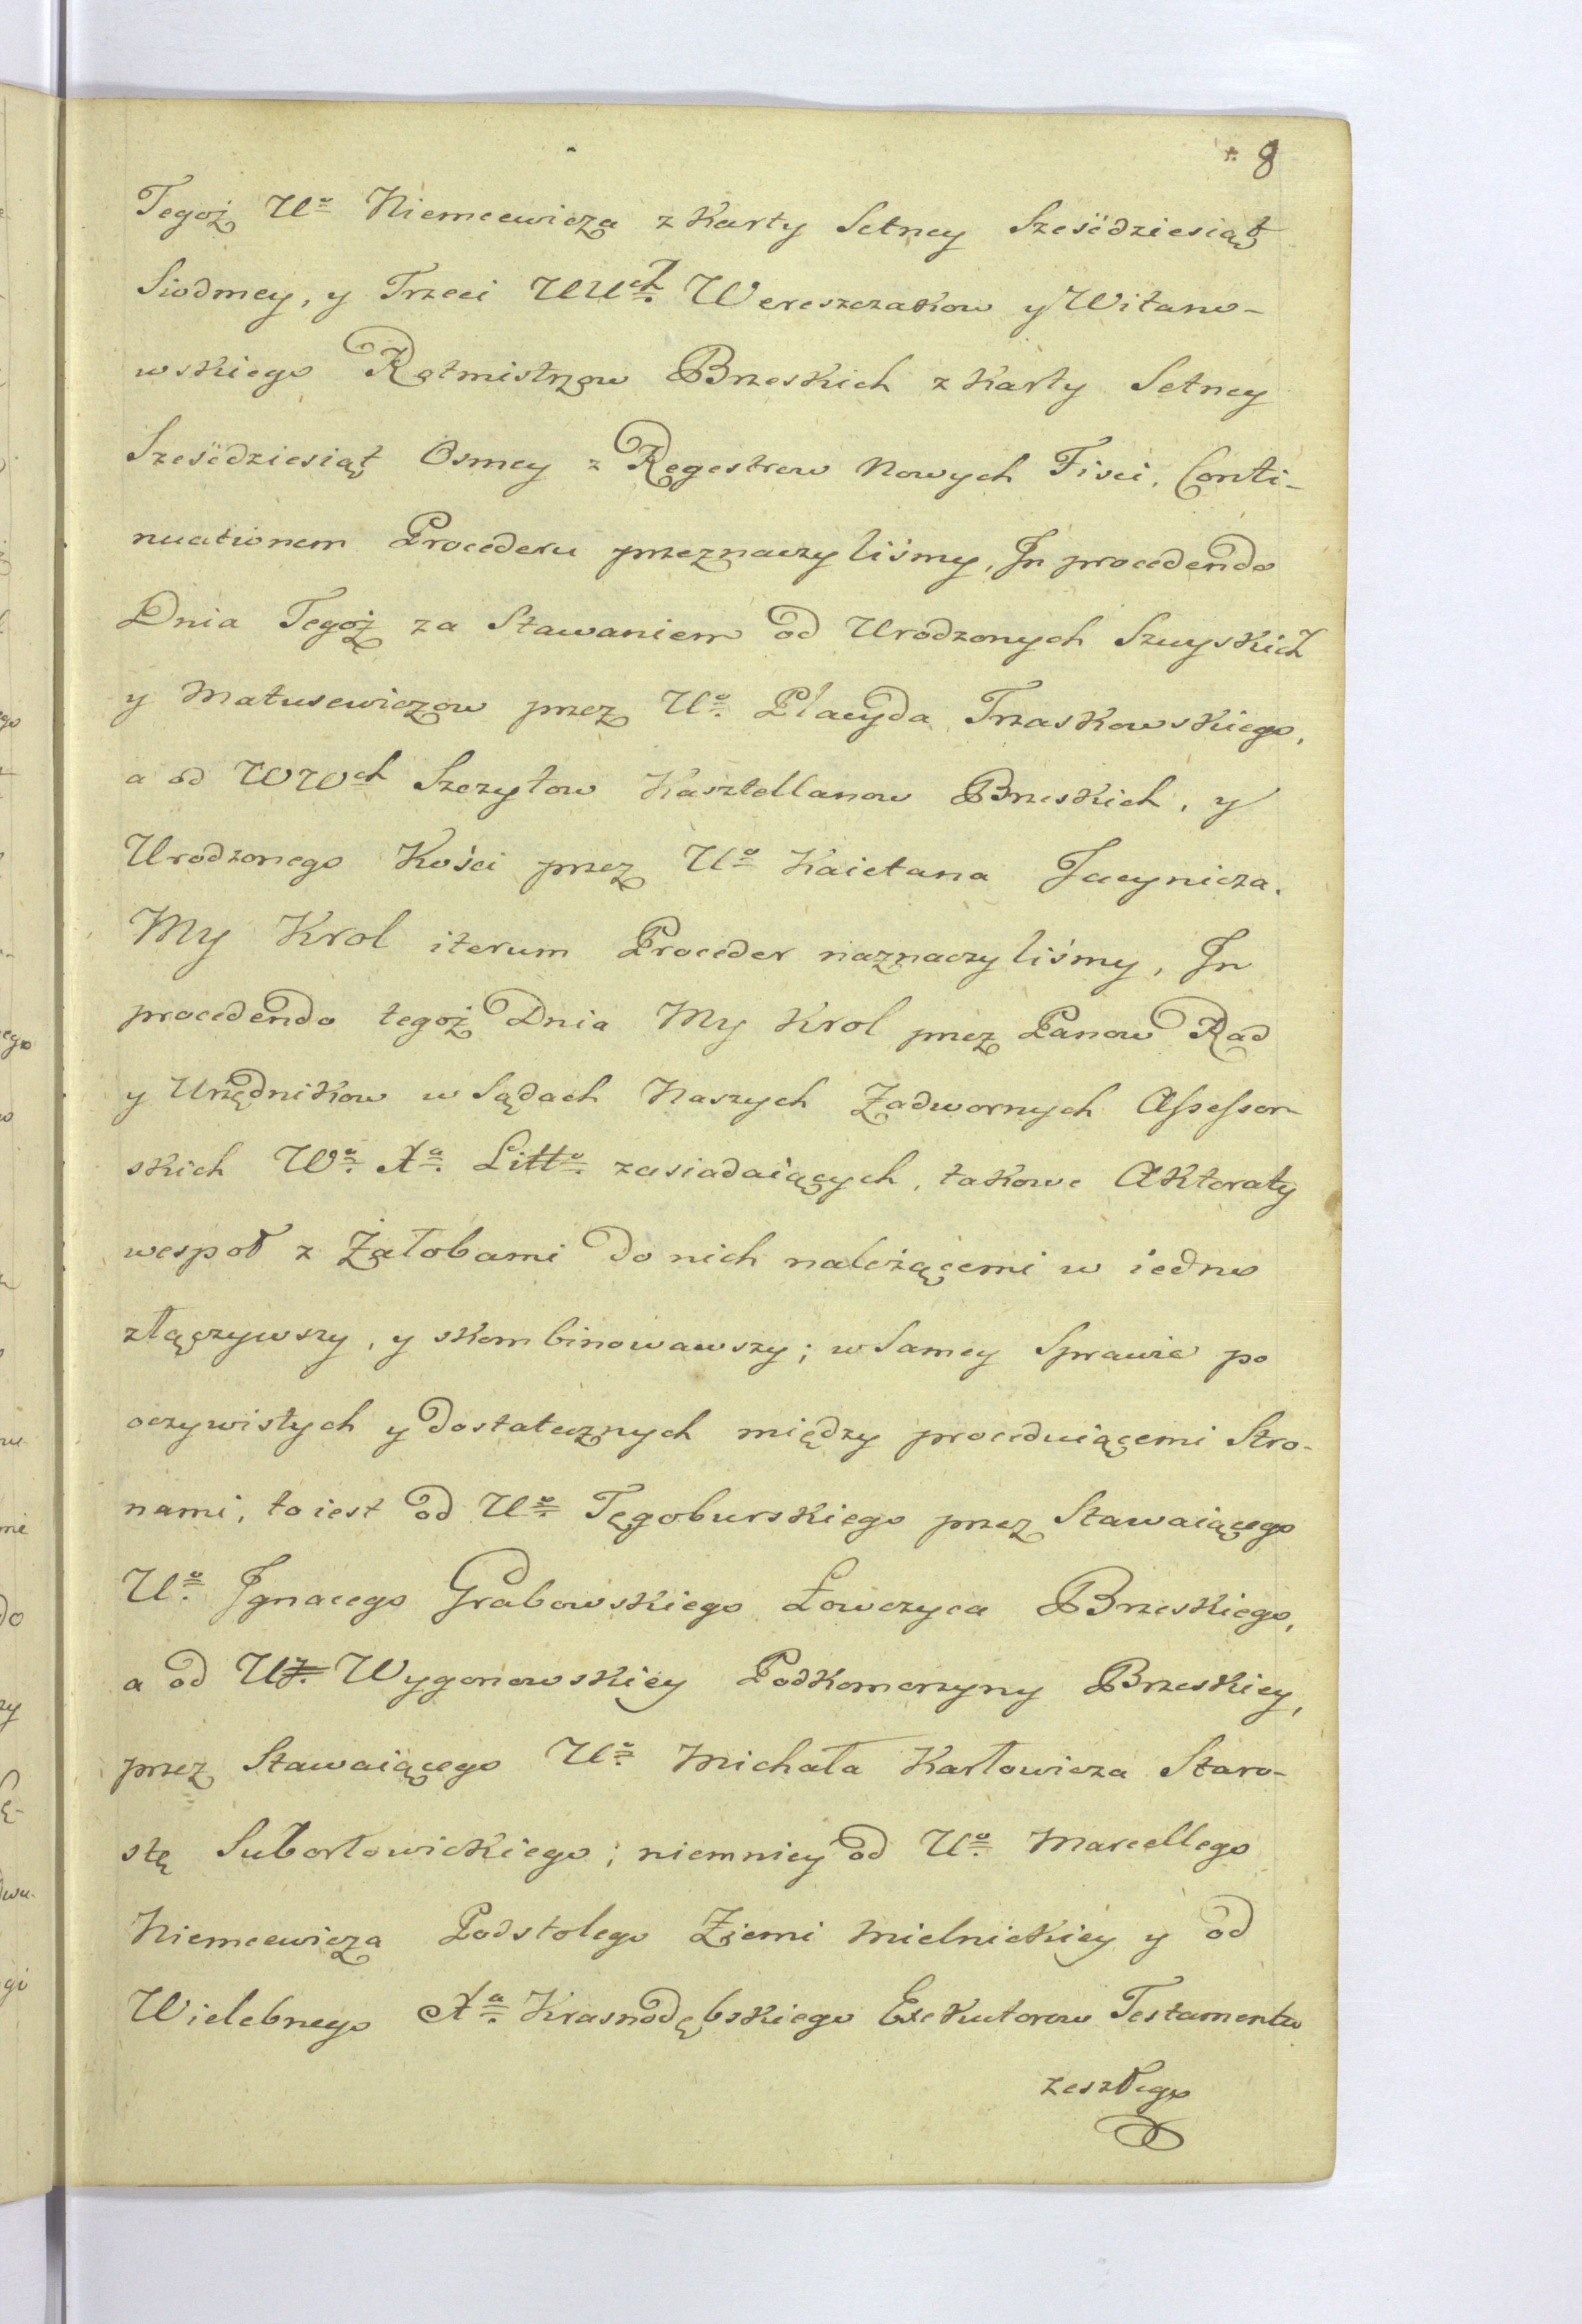 8
Tegoż Uo Niemcewicza z Karty Setney Sześćdziesiąt
Siodmey, y Trzeci UUch Wereszczakow y Witano-
wskiego Rotmistrzow Brzeskich z Karty Setney
Sześćdziesiąt Osmey z Regestrow Nowych Fisci, Conti-
nuationem Procederu przeznaczyliśmy, In procedendo
Dnia Tegoż za Stawaniem od Urodzonych Szuyskich
y Matusewiczow przez Uo Placyda Trzaskowskiego,
a od WWch Szczytow Kasztellanow Brzeskich, y
Urodzonego Kości przez Uo Kaietana Jacynicza.
My Krol iterum Proceder naznaczyliśmy, In
procedendo tegoż Dnia My Krol przez Panow Rad
y Urzędnikow w Sądach Naszych Zadwornych Assessor-
skich Wo Xa Litto zasiadaiących, takowe Aktoraty
wespoł z Żałobami do nich należącemi w iedno
złączywszy, y skombinowawszy; w Samey Sprawie po
oczywistych y dostatecznych między proceduiącemi Stro-
nami, to iest od Uo Tęgoburskiego przez Stawaiącego
Uo Ignacego Grabowskiego Łowczyca Brzeskiego,
a od Uy Wygonowskiey Podkomorzyny Brzeskiey,
przez Stawaiącego Uo Michała Karłowicza Staro-
stę Subortowickiego; niemniey od Uo Marcellego
Niemcewicza Podstolego Ziemi Mielnickiey y od
Wielebnego Xa Krasnodębskiego Exekutorow Testamentu
zeszłego